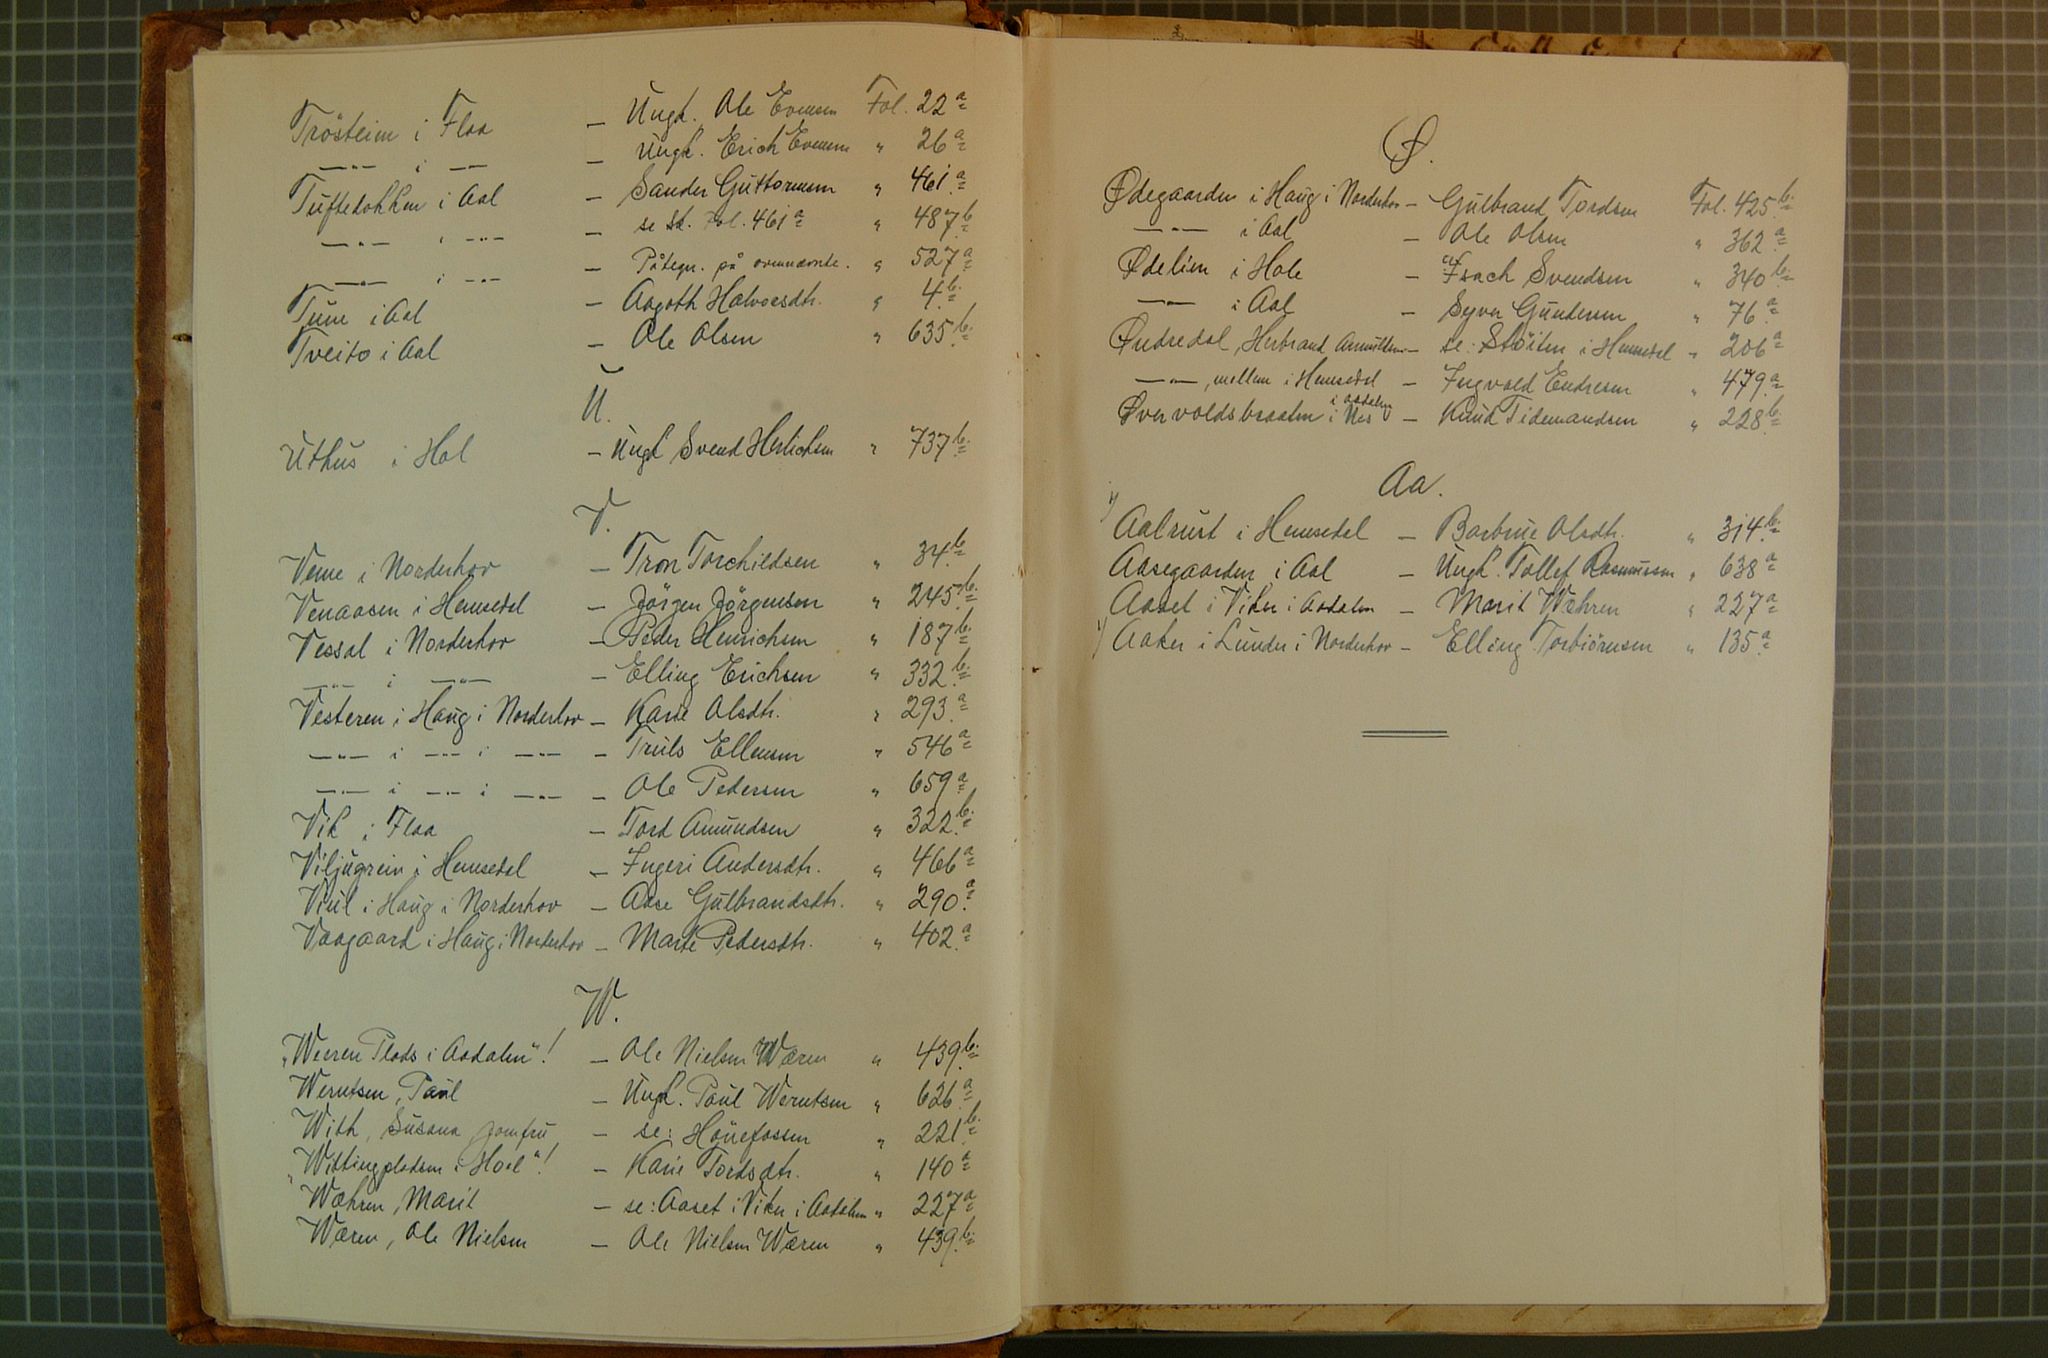 Trösteim i Flaa – Ungk. Ole Evensen Fol. 22 a
—"— i — – Ungk. Erich Evensen " 26 a
Tuftedokken i Aal – Sander Guttormsen " 461 a
—"— i —"— – se sk. Fol. 461 a " 487 b.
—"— i —"— – Påtegn. på ovennævnte. " 527 a
Tune i Aal – Aagoth Halvorsdtr. " 4 b.
Tveito i Aal – Ole Olsen " 635 b.
U.
Uthus i Hol – Ungk Svend Herlichsen " 737 b.
V.
Veme i Norderhov – Tron Torchildsen " 34 b.
Venaasen i Hemsedal – Jörgen Jörgensen " 245 b.
Vessal i Norderhov – Peder Henrichsen " 187 b.
—"— i —"— – Elling Erichsen " 332 b.
Vesteren i Haug i Norderhov – Karie Olsdtr. " 293 a
—"— i —"— i —"— – Truls Ellensen " 546 a
—"— i —"— i —"— – Ole Pedersen " 659 a
Vik i Flaa – Tord Amundsen " 322 b.
Viljugrein i Hemsedal – Ingeri Andersdtr. " 466 a
Viul i Haug i Norderhov – Aase Gulbrandsdtr. " 290 a
Vaagaard i Haug i Norderhov – Marte Pedersdtr. " 402 a
W.
"Weeren Plads i Aadalen"! – Ole Nielsen Wæren " 439 b.
Werutsen, Paul – Ungk. Paul Werutsen " 626 a
With, Susana jomfru – se: Hönefossen " 221 b.
"Wittingpladsen i Hoel"! – Karie Tordsdtr. " 140 a
Wæhren, Marit – se: Aaset i Viker i Aadalen " 227 a
Wæren, Ole Nielsen – Ole Nielsen Wæren " 439 b.
Ø.
Ødegaarden i Haug i Norderhov – Gulbrand Tordsen Fol. 425 b.
—"— i Aal – Ole Olsen " 362 a
Ødelien i Hole – Isach Svendsen " 340 b.
—"— i Aal – Syver Gundersen " 76 a
Øndredal, Herbrand Amundsen – se: Stöiten i Hemsedal " 206 a
—"—, mellem i Hemsedal – Ingvold Endresen " 479 a
Øvervoldsbraaten i Nes i Aadalen – Knud Tidemandsen " 228 b.
Aa.
Aalrust i Hemsedal – Barbrue Olsdtr. " 314 b.
Aasegaarden i Aal – Ungk. Tollef Rasmussen " 638 a
Aaset i Viker i Aadalen – Marit Wæhren " 227 a
Aaker i Lunder i Norderhov – Elling Torbiörnsen " 135 a